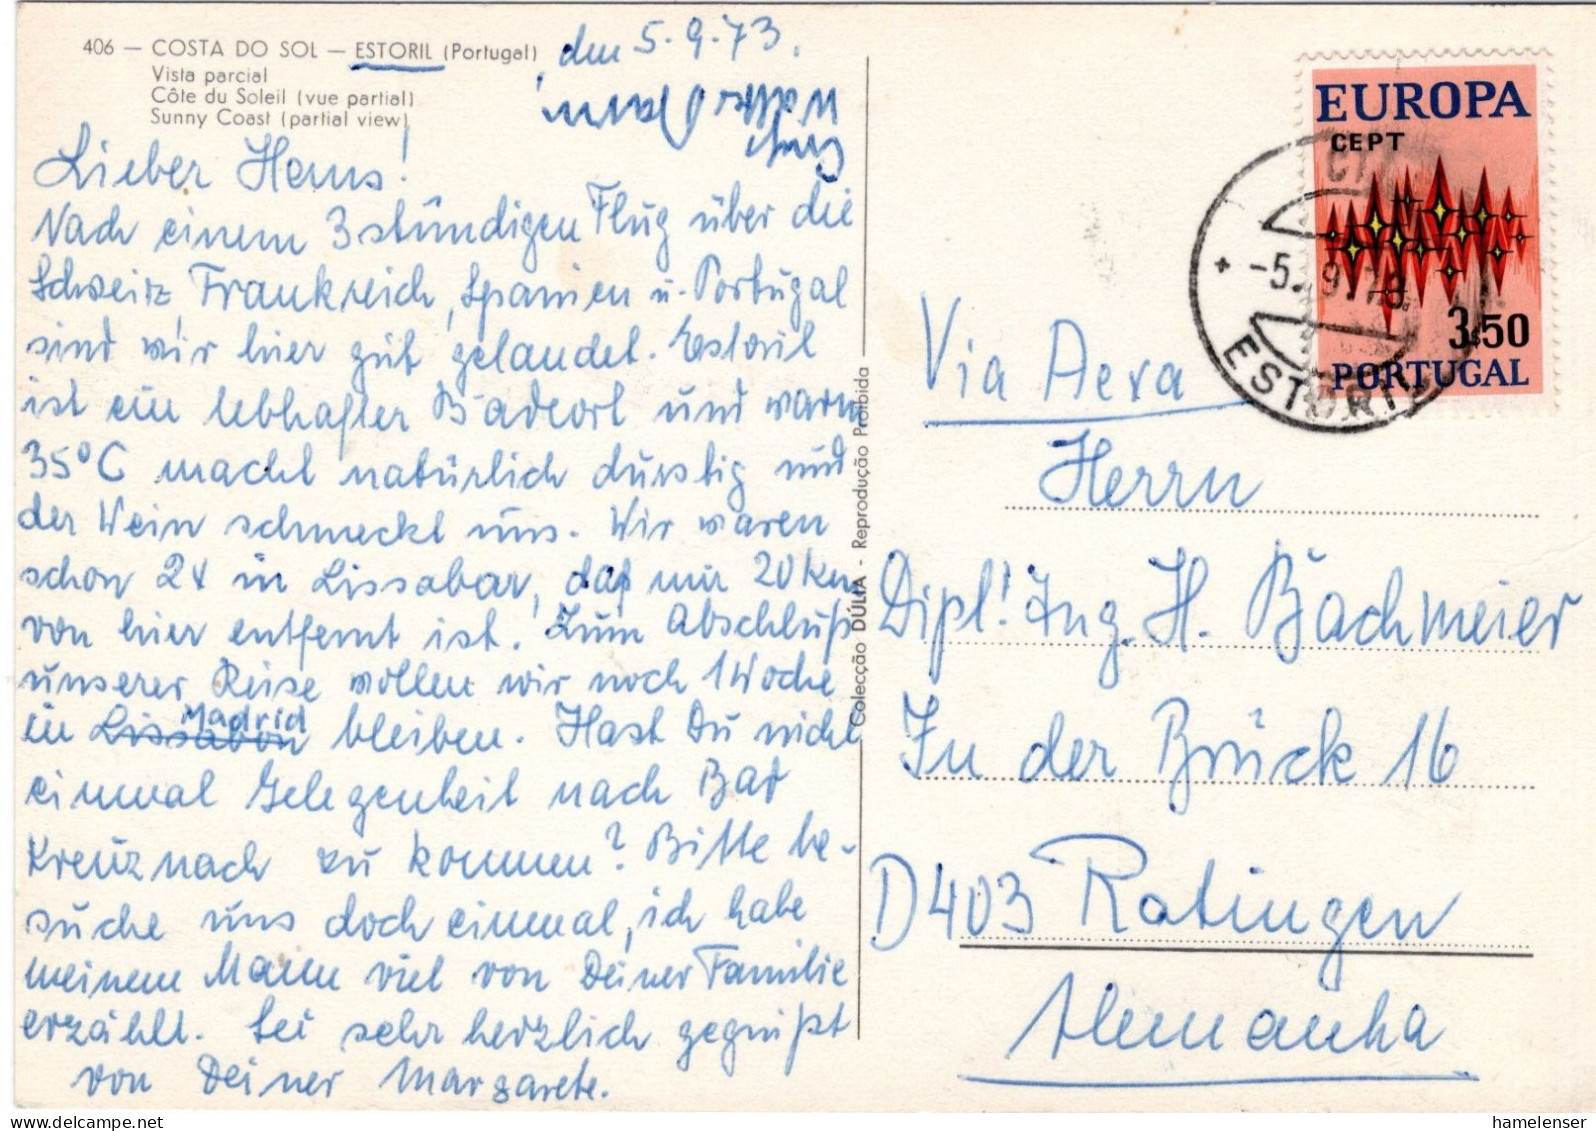 406 — COSTA DO SOL — ESTORIL (Portugal)
Vista parcial
Côte du Soleil (vue partial)
Sunny Coast (partial view)
, den 5.9.73.
Lieber Hans!
Nach einem 3stündigen Flug über die
Schweiz, Frankreich, Spanien u. Portugal
sind wir hier gut gelandet. Estoril
ist ein lebhafter Badeort und warm
35°C macht natürlich durstig und
der Wein schmeckt uns. Wir waren
schon 2x in Lissabon, daß nur 20 km
von hier entfernt ist. Zum Abschluß
unserer Reise wollen wir noch 1 Woche
in Lissabon Madrid bleiben. Hast Du nicht
einmal Gelegenheit nach Bad
Kreuznach zu kommen? Bitte be-
suche uns doch einmal, ich habe
meinem Mann viel von Deiner Familie
erzählt. Sei sehr herzlich gegrüßt
von Deiner Margarete.
Colecção DÚLIA - Reprodução Proibida
EUROPA
CEPT
3$50
PORTUGAL
CTT
-5. 9. 73
ESTORIL
Via Aera
Herrn
Dipl. Ing. H. Bachmeier
In der Brück 16
D403 Ratingen
Alemanha
hamelenser